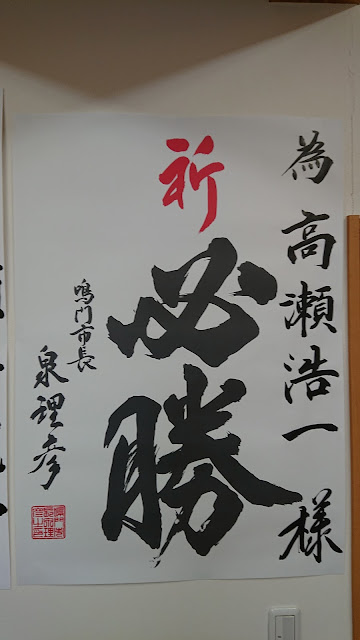 為高瀬浩一様
祈
必勝
鳴門市長
泉理彦